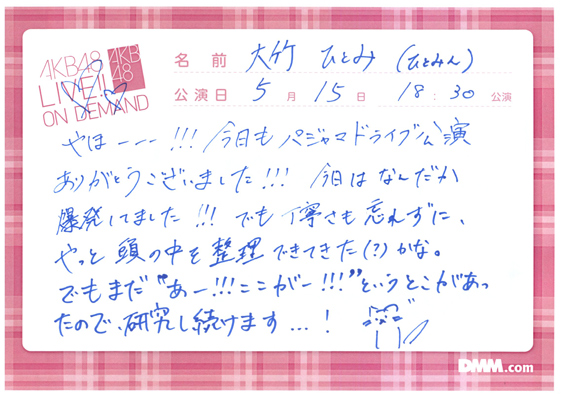 AKB48
LIVE!!
ON DEMAND
AKB
48
名前 大竹 ひとみ (ひとみん)
公演日 5月15日 18:30 公演
やほーーー!!! 今日もパジャマドライブ公演
ありがとうございました!!! 今日はなんだか
爆発してました!!! でも丁寧さも忘れずに、
やっと頭の中を整理できてきた(?)かな。
でもまだ“あー!!!ここがー!!!”というとこがあっ
たので、研究し続けます…!
DMM.com